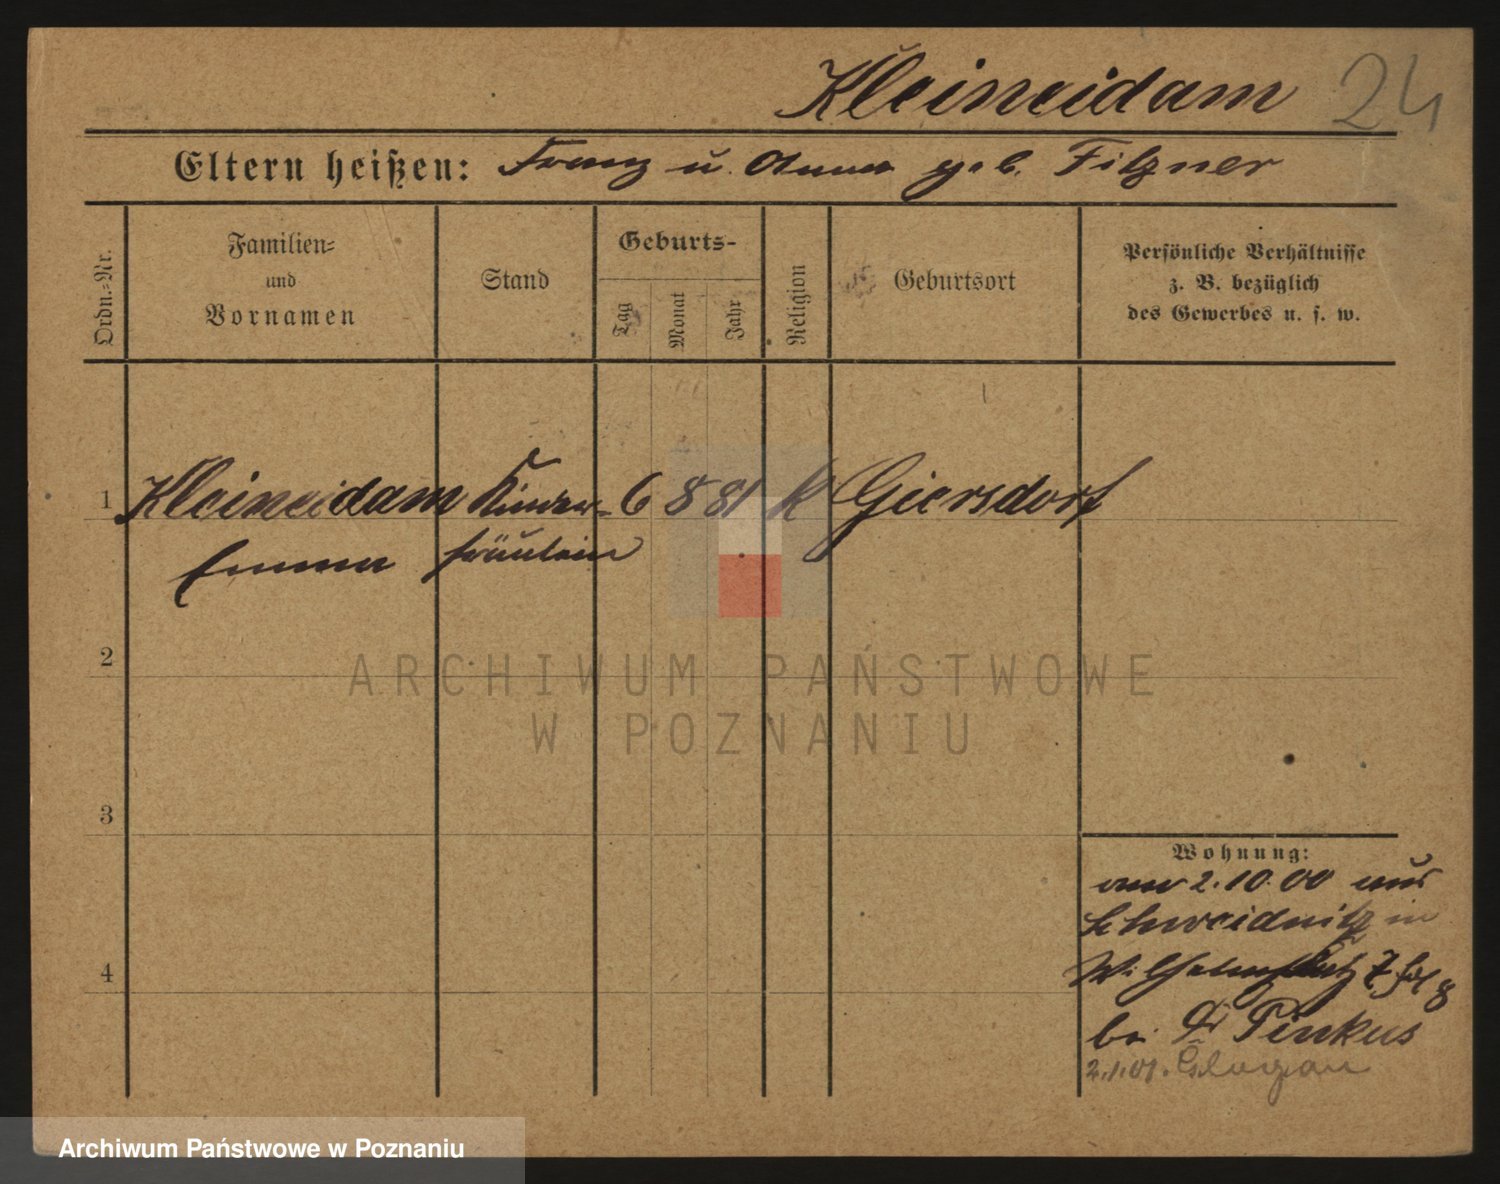 Kleineidam 24
Eltern heißen: Franz u. Anna geb. Fitzner
Ordn.-Nr.
Familien-
und
Vornamen
Stand
Geburts-
Tag
Monat
Jahr
Religion
Geburtsort
Persönliche Verhältnisse
z. B. bezüglich
des Gewerbes u. s. w.
1 Kleineidam Kinder- 6 8 81 k Giersdorf
Emma fräulein
2
3
4
Wohnung:
am 2.10.00 aus
Schweidnitz in
Wilhelmplatz 7
bei Dr Pinkus
2.1.01. Glogau
ARCHIWUM PAŃSTWOWE
W POZNANIU
Archiwum Państwowe w Poznaniu